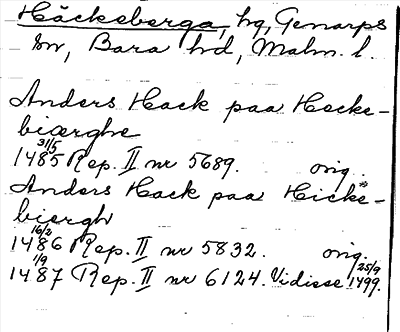 Häckeberga, hg, Genarps
sn, Bara hd, Malm. l.
Anders Hack paa Hecke-
biærghe
31/5 1485 Rep. II nr 5689. orig.
Anders Hack paa Hicke-
biergh
16/2 1486 Rep. II nr 5832. orig.
1/9 1487 Rep. II nr 6124. Vidisse 25/9 1499.